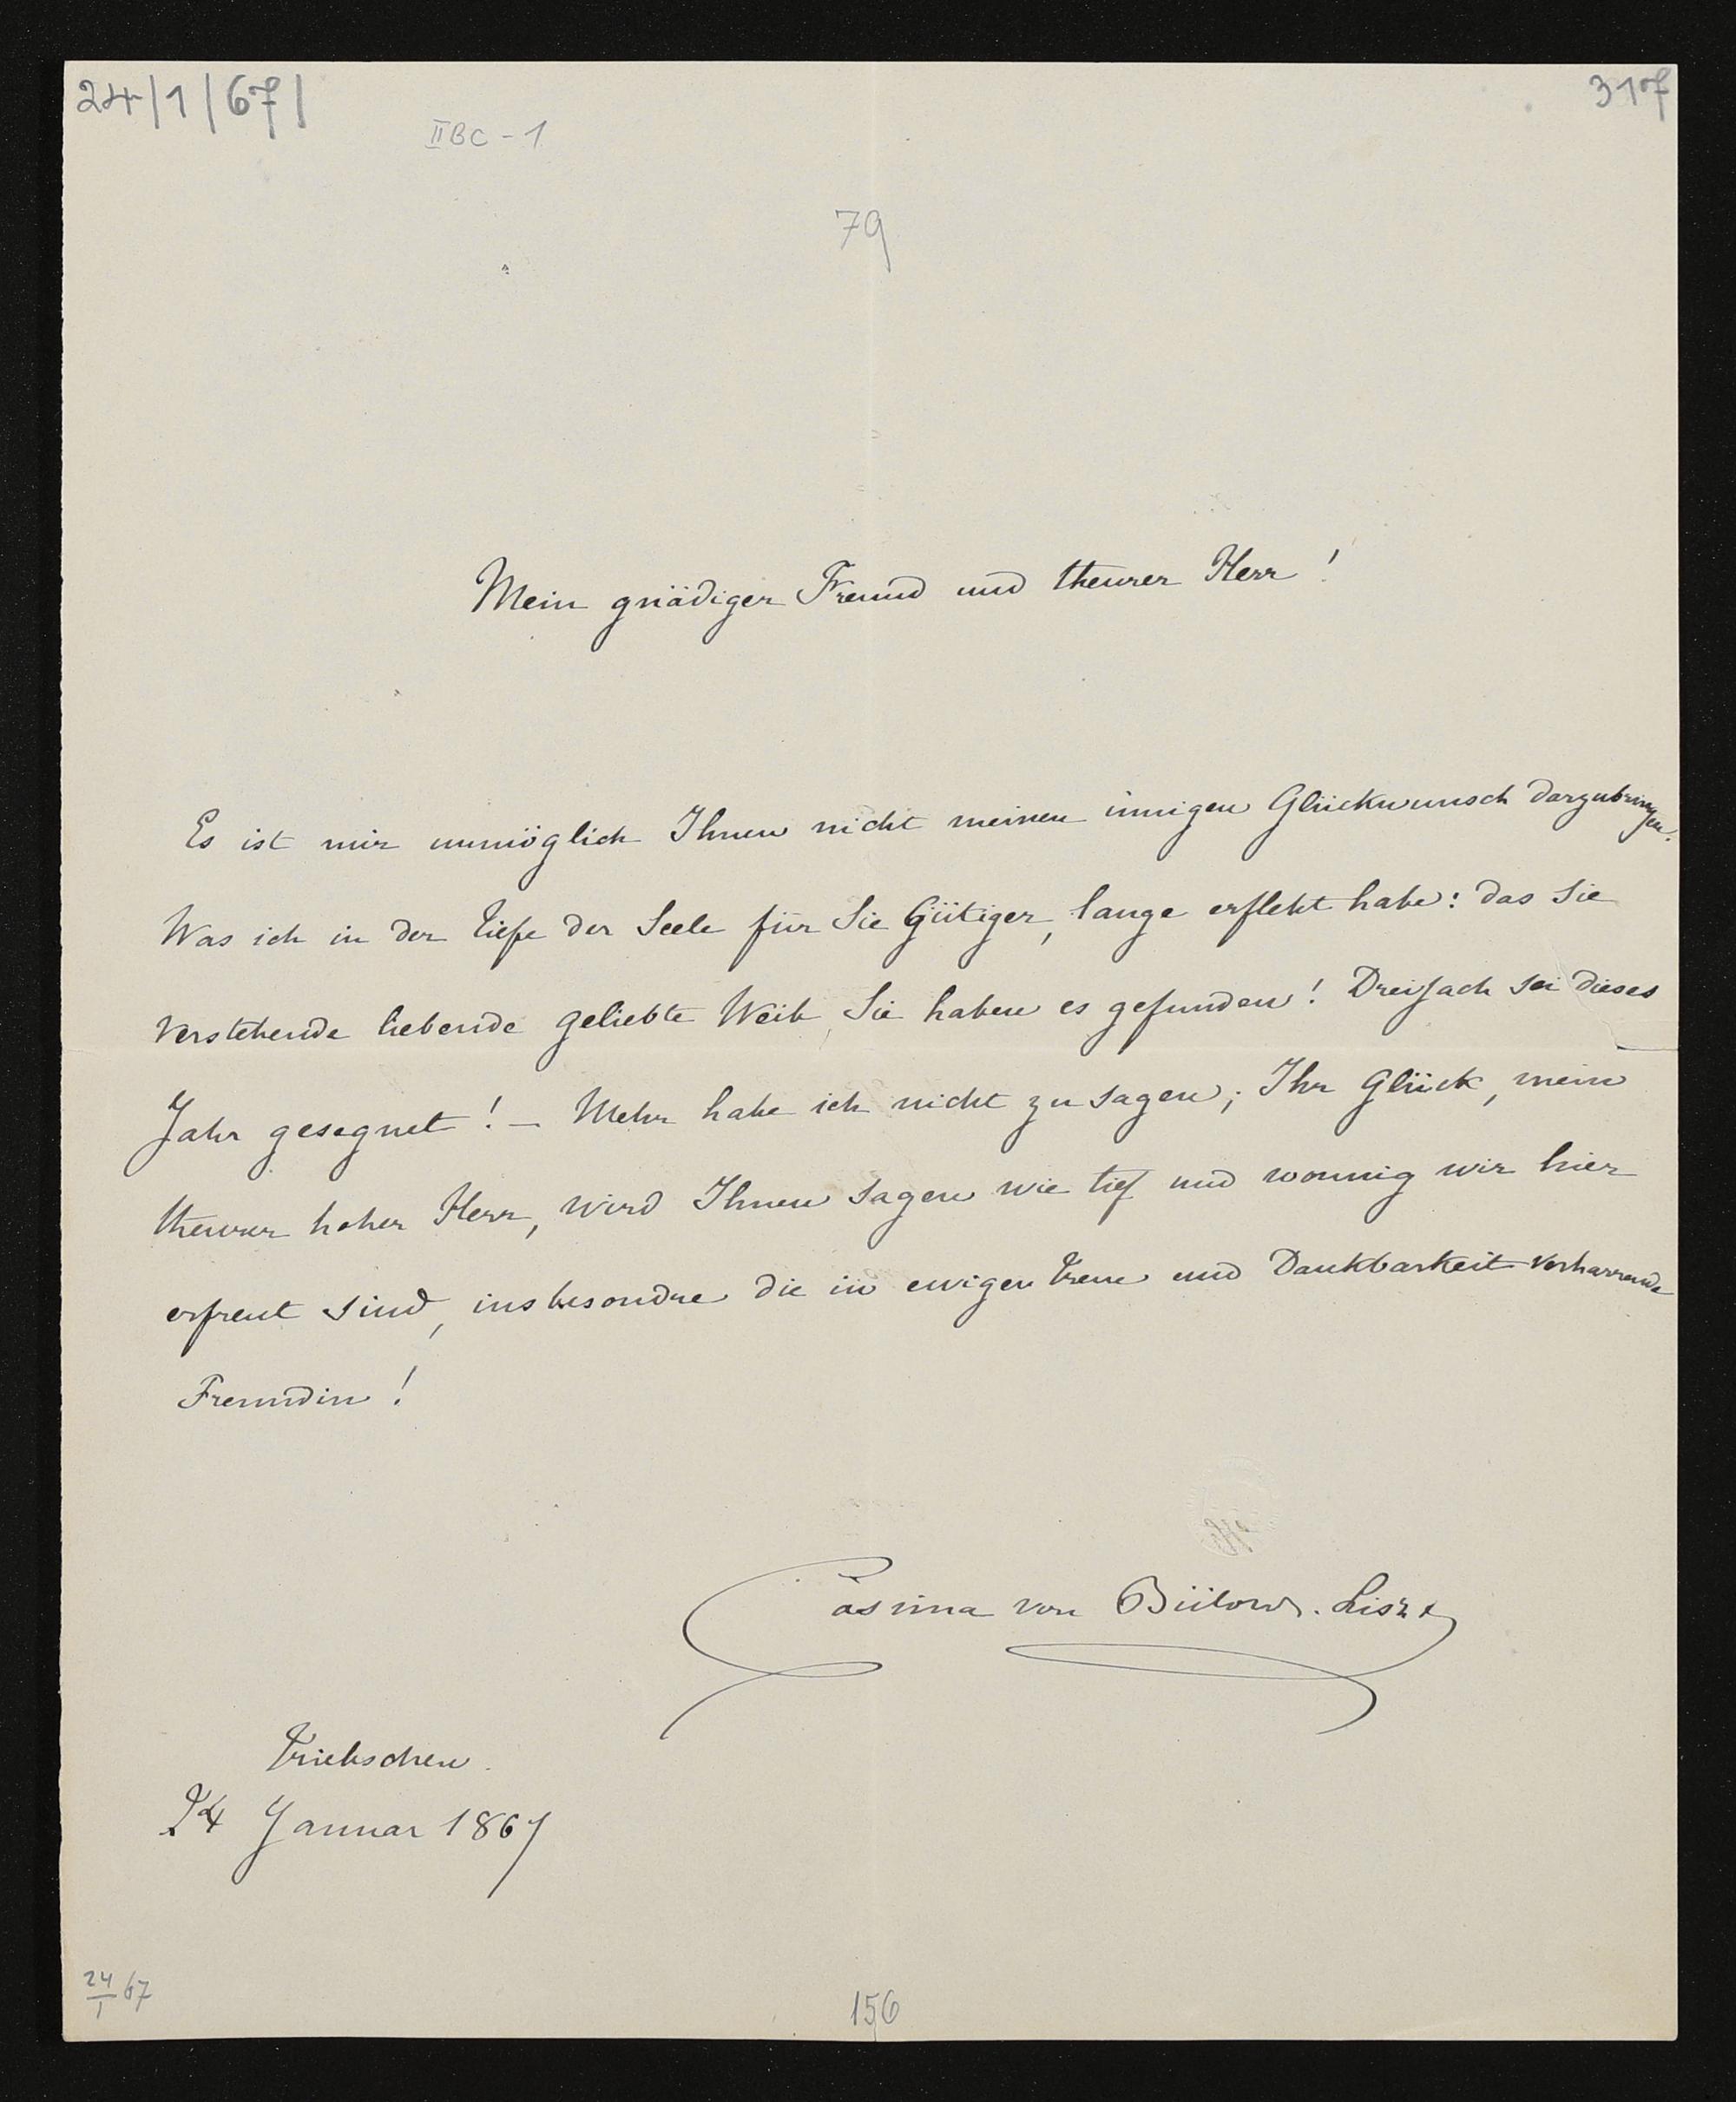 24/1/67/
317
IIBC-1
79
Mein gnädiger Freund und theurer Herr!
Es ist mir unmöglich Ihnen nicht meinen innigen Glückwunsch darzubringen.
Was ich in der Tiefe der Seele für Sie Gütiger, lange erfleht habe: das Sie
verstehende liebende geliebte Weib, Sie haben es gefunden! Dreifach sei dieses
Jahr gesegnet! — Mehr habe ich nicht zu sagen; Ihr Glück, mein
theurer hoher Herr, wird Ihnen sagen wie tief und wonnig wir hier
erfreut sind, insbesondre die in ewiger Treue und Dankbarkeit verharrende
Freundin!
Cosima von Bülow. Liszt
Triebschen.
24 Januar 1867
24/I 67
156